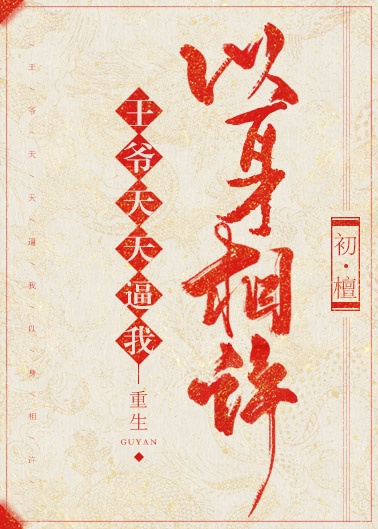 以身相许
初·檀
王爷天天逼我
重生
GUYAN
王/爷/天/天/逼/我/以/身/相/许/